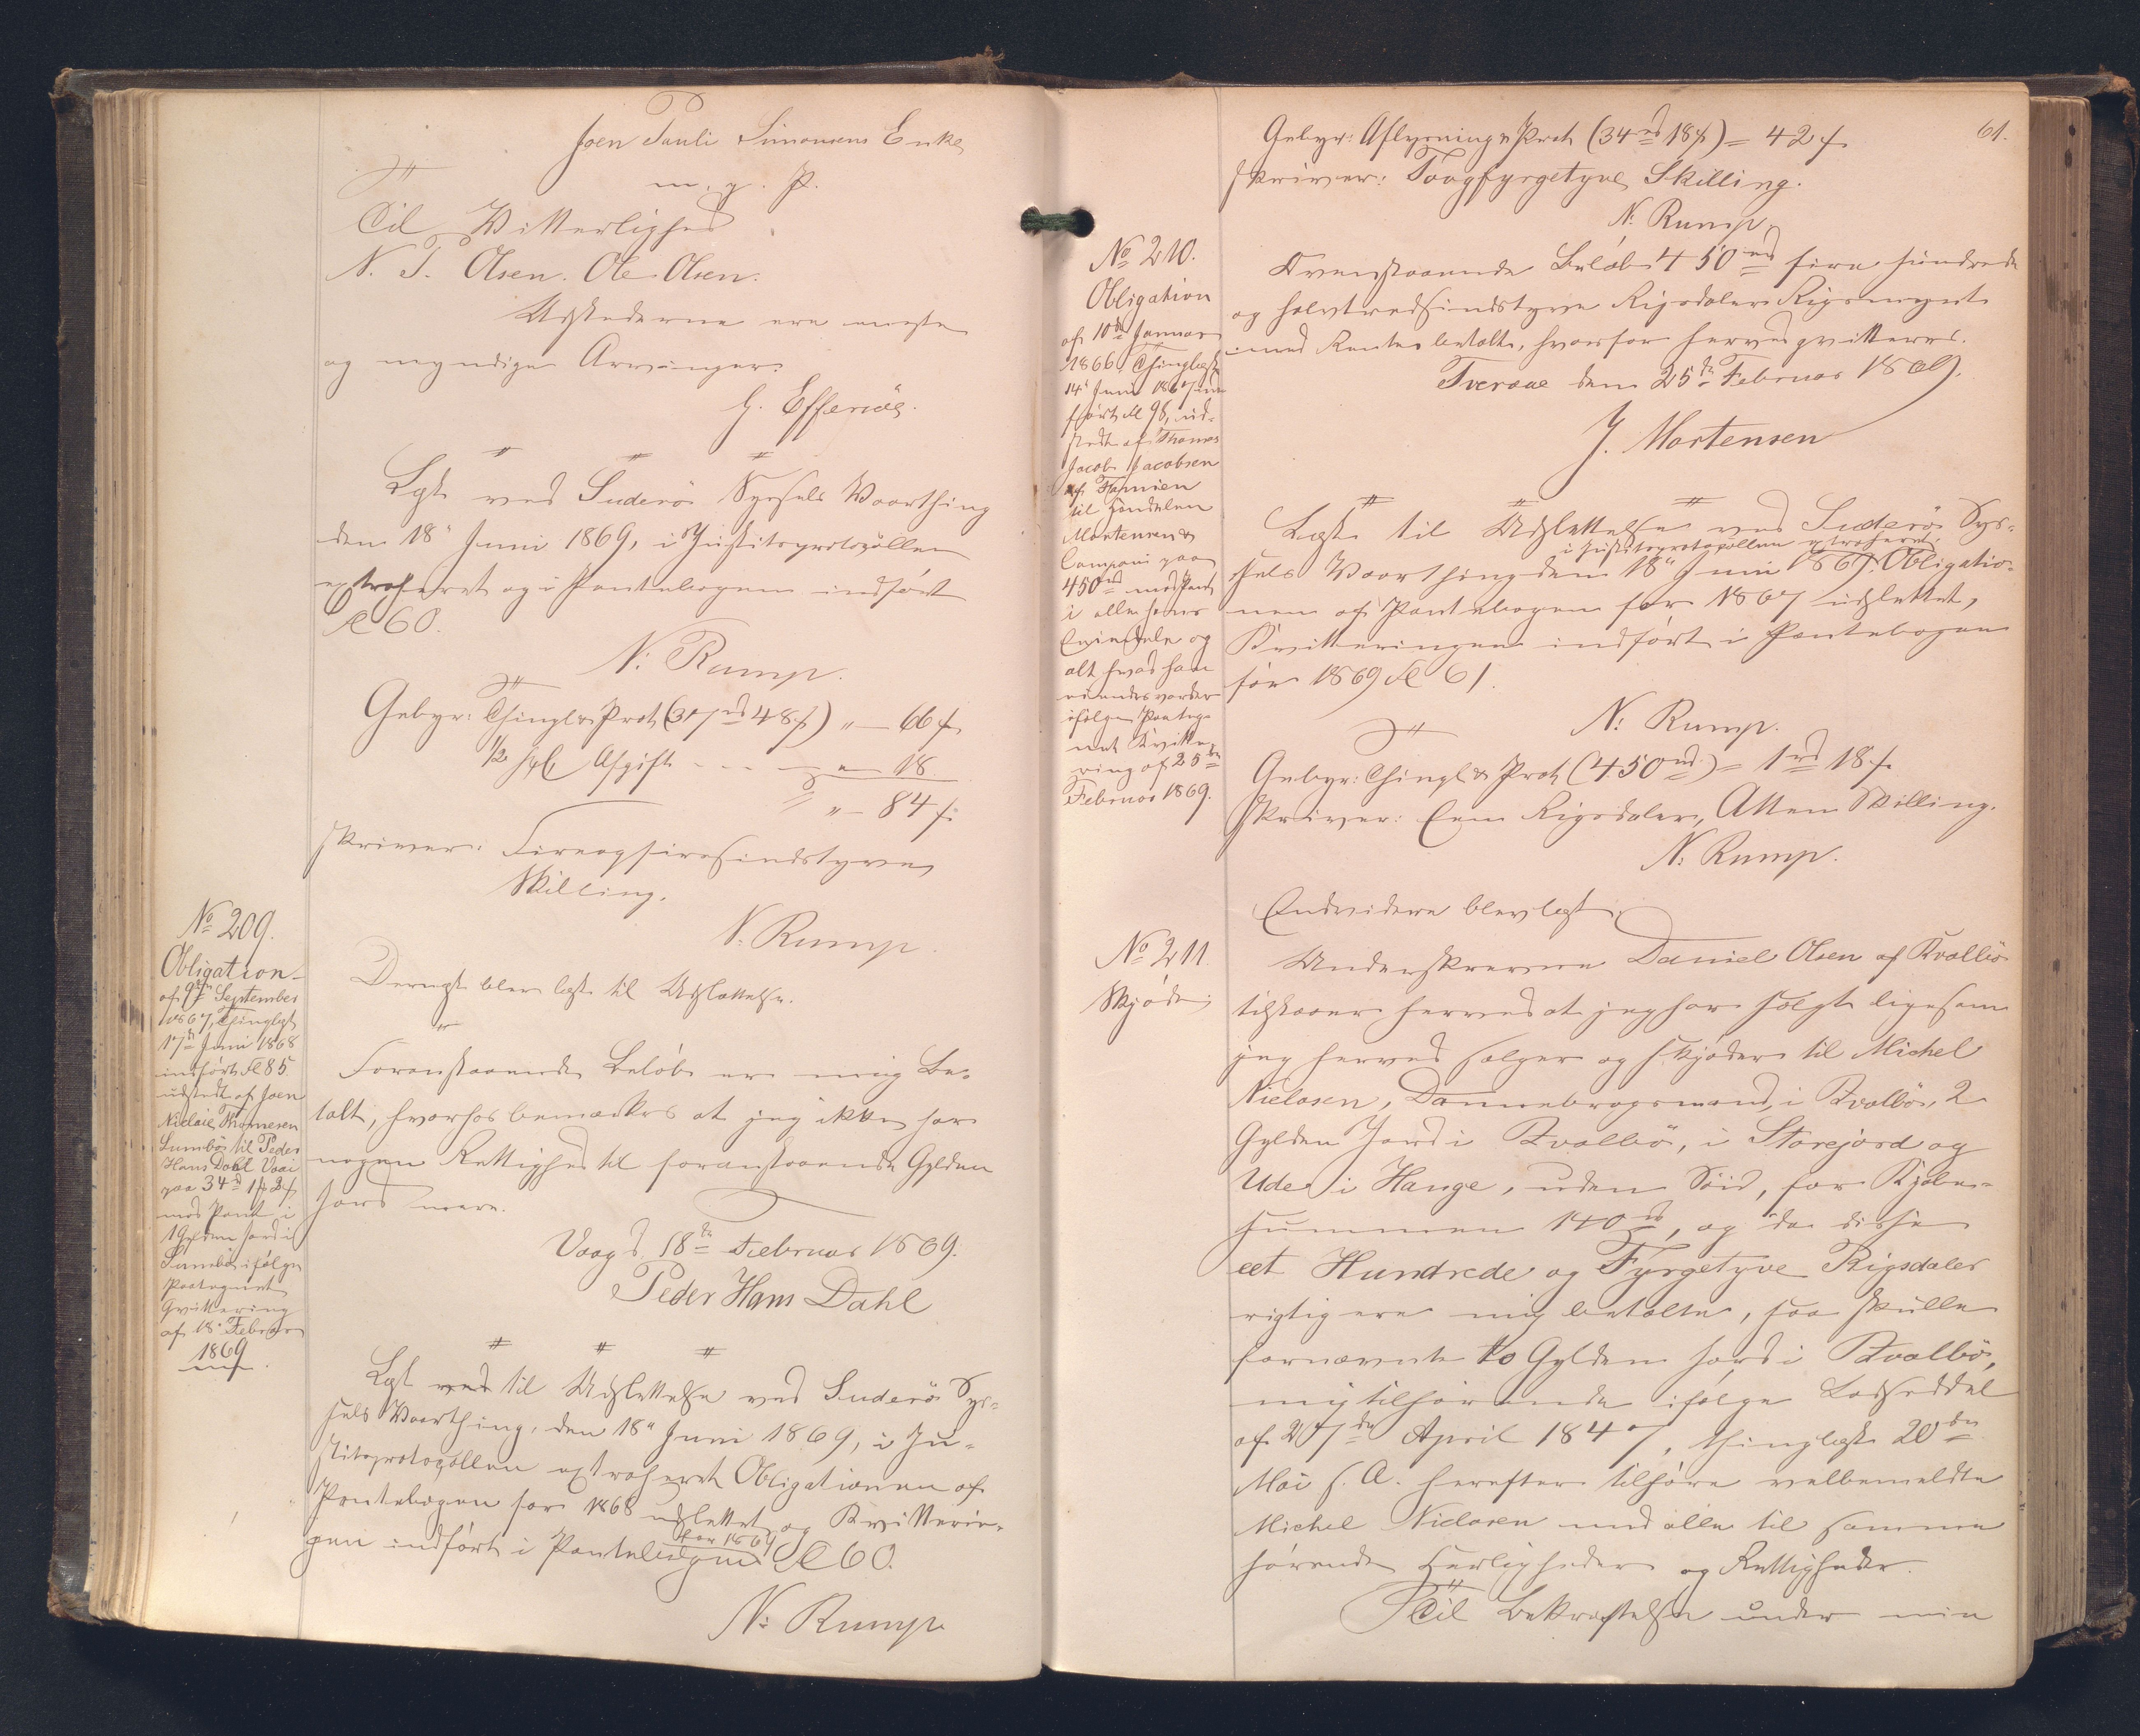 Joen Pauli Simonsens Enke
m. p. P.
Til Vitterlighed
N. P. Olsen. Ole Olsen.
Udstederne ere eneste
og myndige Arvinger.
G. Effersöe.
Læst ved Suderö Syssels Vaarthing
den 18de Juni 1869, i Justitsprotocollen
extraheret og i Pantebogen indfört
Fol 60.
N: Rump.
Gebyr: Thingl & Prot (37 rd 48 s) " — 66 s
1/2 Afgift - - - " — 18
" — 84 s:
skriver: Fireogfiresindstyve
Skilling.
N. Rump
No 209.
Obligation
af 9de September
1867, Thinglæst
17de Juni 1868
indfört Fol 85
udstedt af Joen
Niclais Thomesen
Sumbö til Peder
Hans Dahl Vaai
paa 34 rd 1 2 s
mod Pant i
1 Gylden Jord i
Sumbö ifölge
paategnet
Qvittering
af 18 Februar
1869
Dernæst blev læst til Udslættelse.
Foranstaaende Belöb er mig be-
talt, hvorhos bemærkes at jeg ikke har
nogen Rettighed til foranstaaende Gylden
Jord mere.
Vaag d. 18de Februar 1869.
Peder Hans Dahl
Læst ved til Udslettelse ved Suderö Sys-
sels Vaarthing, den 18de Juni 1869, i Ju-
stitsprotocollen extraheret Obligationen af
Pantebogen for 1868 udslettet og Kvitterin-
gen indfört i Pantebogen for 1869 Fol 60.
N: Rump
61.
Gebyr: Aflysning & Prot (34 rd 18 s) = 42 s
skriver: Toogfyrgetyve Skilling.
N. Rump
No 210.
Obligation
af 10de Januar
1866, Thinglæst
14 Juni 1867 ind-
fört Fol 98, ud-
stedt af Thomas
Jacob Jacobsen
af Famien
til Handelen
Mortensen &
Compani paa
450 rd mod Pant
i alle hans
Eiendele og
alt hvad han
eiendes vorder
ifölge Paateg-
net Kvitte-
ring af 25de
Februar 1869.
Ovenstaaende Belöb 450 rd fire hundrede
og halvtredsindstyve Rigsdaler Rigsmynt
med Renter betalt, hvorfor herved qvitteres.
Tveraae den 25de Februar 1869.
J. Mortensen
Læst til Udslettelse ved Suderö Sys-
i Justitsprotocollen extraheret.
sels Vaarthing den 18de Juni 1869. Obligatio-
nen af Pantebogen for 1867 udslettet,
Kvitteringen indfört i Pantebogen
for 1869 Fol 61.
N: Rump.
Gebyr: Thingl & Prot (450 rd) = 1 rd 18 s.
skriver: Een Rigsdaler, Atten Skilling.
N: Rump.
Endvidere blev læst
No 211.
Skjöde
Underskrevne Daniel Olsen af Kvalbö
tilstaaer herved at jeg har solgt ligesom
jeg herved sælger og skjöder til Michel
Nielasen, Dannebrogsmand, i Qvalbö, 2
Gylden Jord i Qvalbö, i Storejord og
Ude i Hange, uden Söid, for Kjöbe-
summen 140 rd, og da disse
eet Hundrede og Fyrgetyve Rigsdaler
rigtig ere mig betalte, saa skulle
fornævnte to Gylden Jord i Qvalbö,
mig tilhörende ifölge Lodseddel
af 27de April 1847, thinglæst 20de
Mai s. A. herefter tilhöre velbemeldte
Michel Nielasen med alle til samme
hörende Herligheder og Rettigheder.
Til Bekræftelse under min